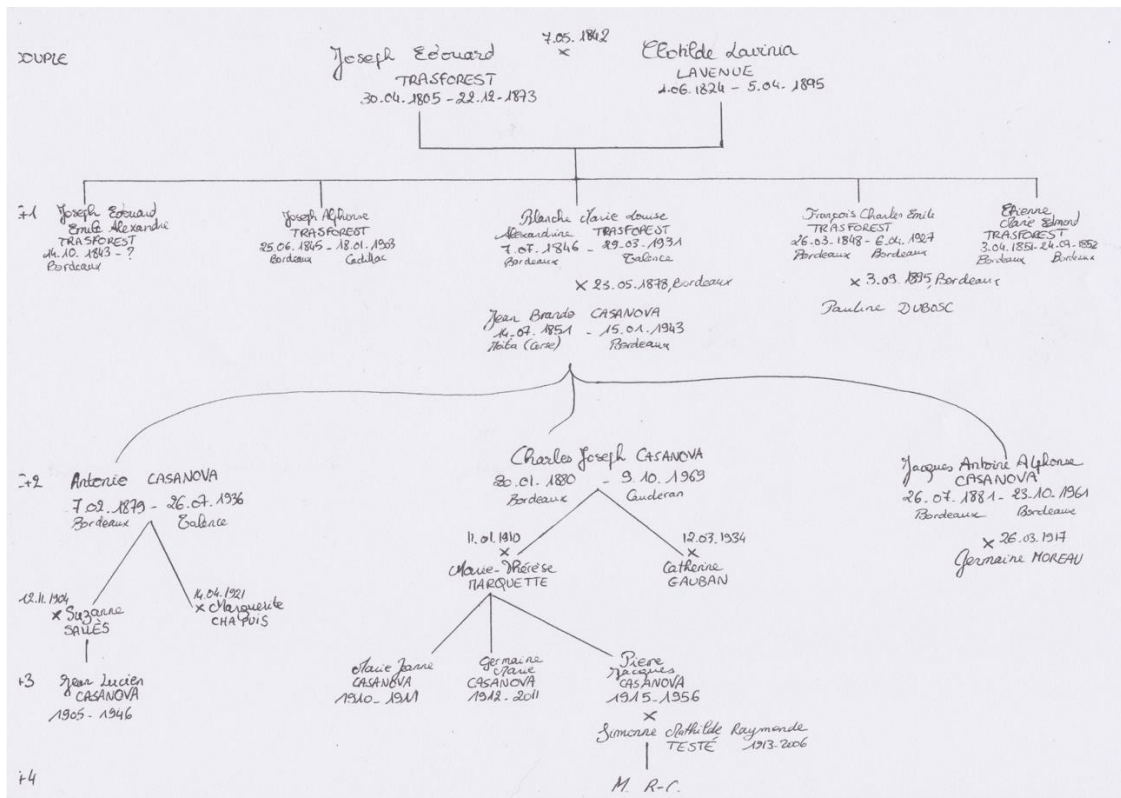 COUPLE
7.05.1842
×
Joseph Edouard
TRASFOREST
30.04.1805 - 22.12-1873
Clotilde Lavinia
LAVENUE
1.06.1824 - 5.04.1895
+1
Joseph Edouard
Emile Alexandre
TRASFOREST
14.10.1843 - ?
Bordeaux
Joseph Alphonse
TRASFOREST
25.06.1845 - 18.01.1903
Bordeaux Cadillac
Blanche Marie Louise
Alexandrine TRASFOREST
7.07.1846 - 29.03-1931
Bordeaux Talence
× 23.05.1878, Bordeaux
Jean Brando CASANOVA
14.07.1851 - 15.01.1943
(Corse) Bordeaux
François Charles Emile
TRASFOREST
26.03.1848 - 6.04.1927
Bordeaux Bordeaux
× 3.09.1895, Bordeaux
Pauline DUBOSC
Etienne
Marie Edmond
TRASFOREST
3.04.1851-24.09.1852
Bordeaux Bordeaux
+2
Antonio CASANOVA
7.02.1879 - 26.07.1936
Bordeaux Talence
12.11.1904
× Suzanne
SALLÈS
14.04.1921
× Marguerite
CHAPUIS
Charles Joseph CASANOVA
20.01.1880 - 9.10.1969
Bordeaux Cauderan
11.01.1910
×
Marie-Thérèse
MARQUETTE
12.03.1934
×
Catherine
GAUBAN
Jacques Antoine Alphonse
CASANOVA
26.07.1881 - 23.10.1961
Bordeaux Bordeaux
× 26.03.1917
Germaine MOREAU
+3
Jean Lucien
CASANOVA
1905 - 1946
Marie Jeanne
CASANOVA
1910 - 1911
Germaine
Marie
CASANOVA
1912 - 2011
Pierre
Jacques
CASANOVA
1915 - 1956
×
Simonne Mathilde Raymonde
TESTÉ 1913-2006
+4
M. R-C.